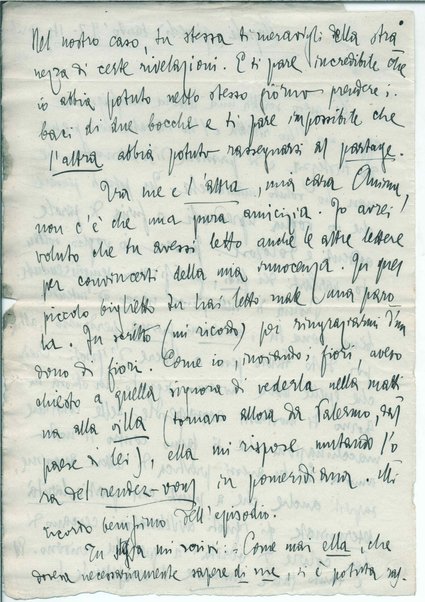 Nel nostro caso, tu stessa ti meravigli della stra
nezza di certe rivelazioni. E ti pare incredibile che
io abbia potuto nello stesso giorno prendere i
baci di due bocche e ti pare impossibile che
l'altra abbia potuto rassegnarsi al partage.
Tra me e l'altra, mia cara
non c'è che una pura amicizia. Io avrei
voluto che tu avessi letto anche le altre lettere
per convincerti della mia innocenza. In quel
piccolo biglietto tu hai letto male una paro
la. Fu scritto (mi ricordo) per ringraziarmi d'un
dono di fiori. Come io, inviando i fiori, avevo
chiesto a quella signora di vederla nella matti
na alla villa (tornavo allora da Palermo, dal
paese di lei), ella mi rispose mutando l'o
ra del rendez-vous in pomeridiana. Mi
ricordo benissimo dell'episodio.
Tu mi scrivi: Come mai ella, che
doveva necessariamente sapere di me, si è potuta ras